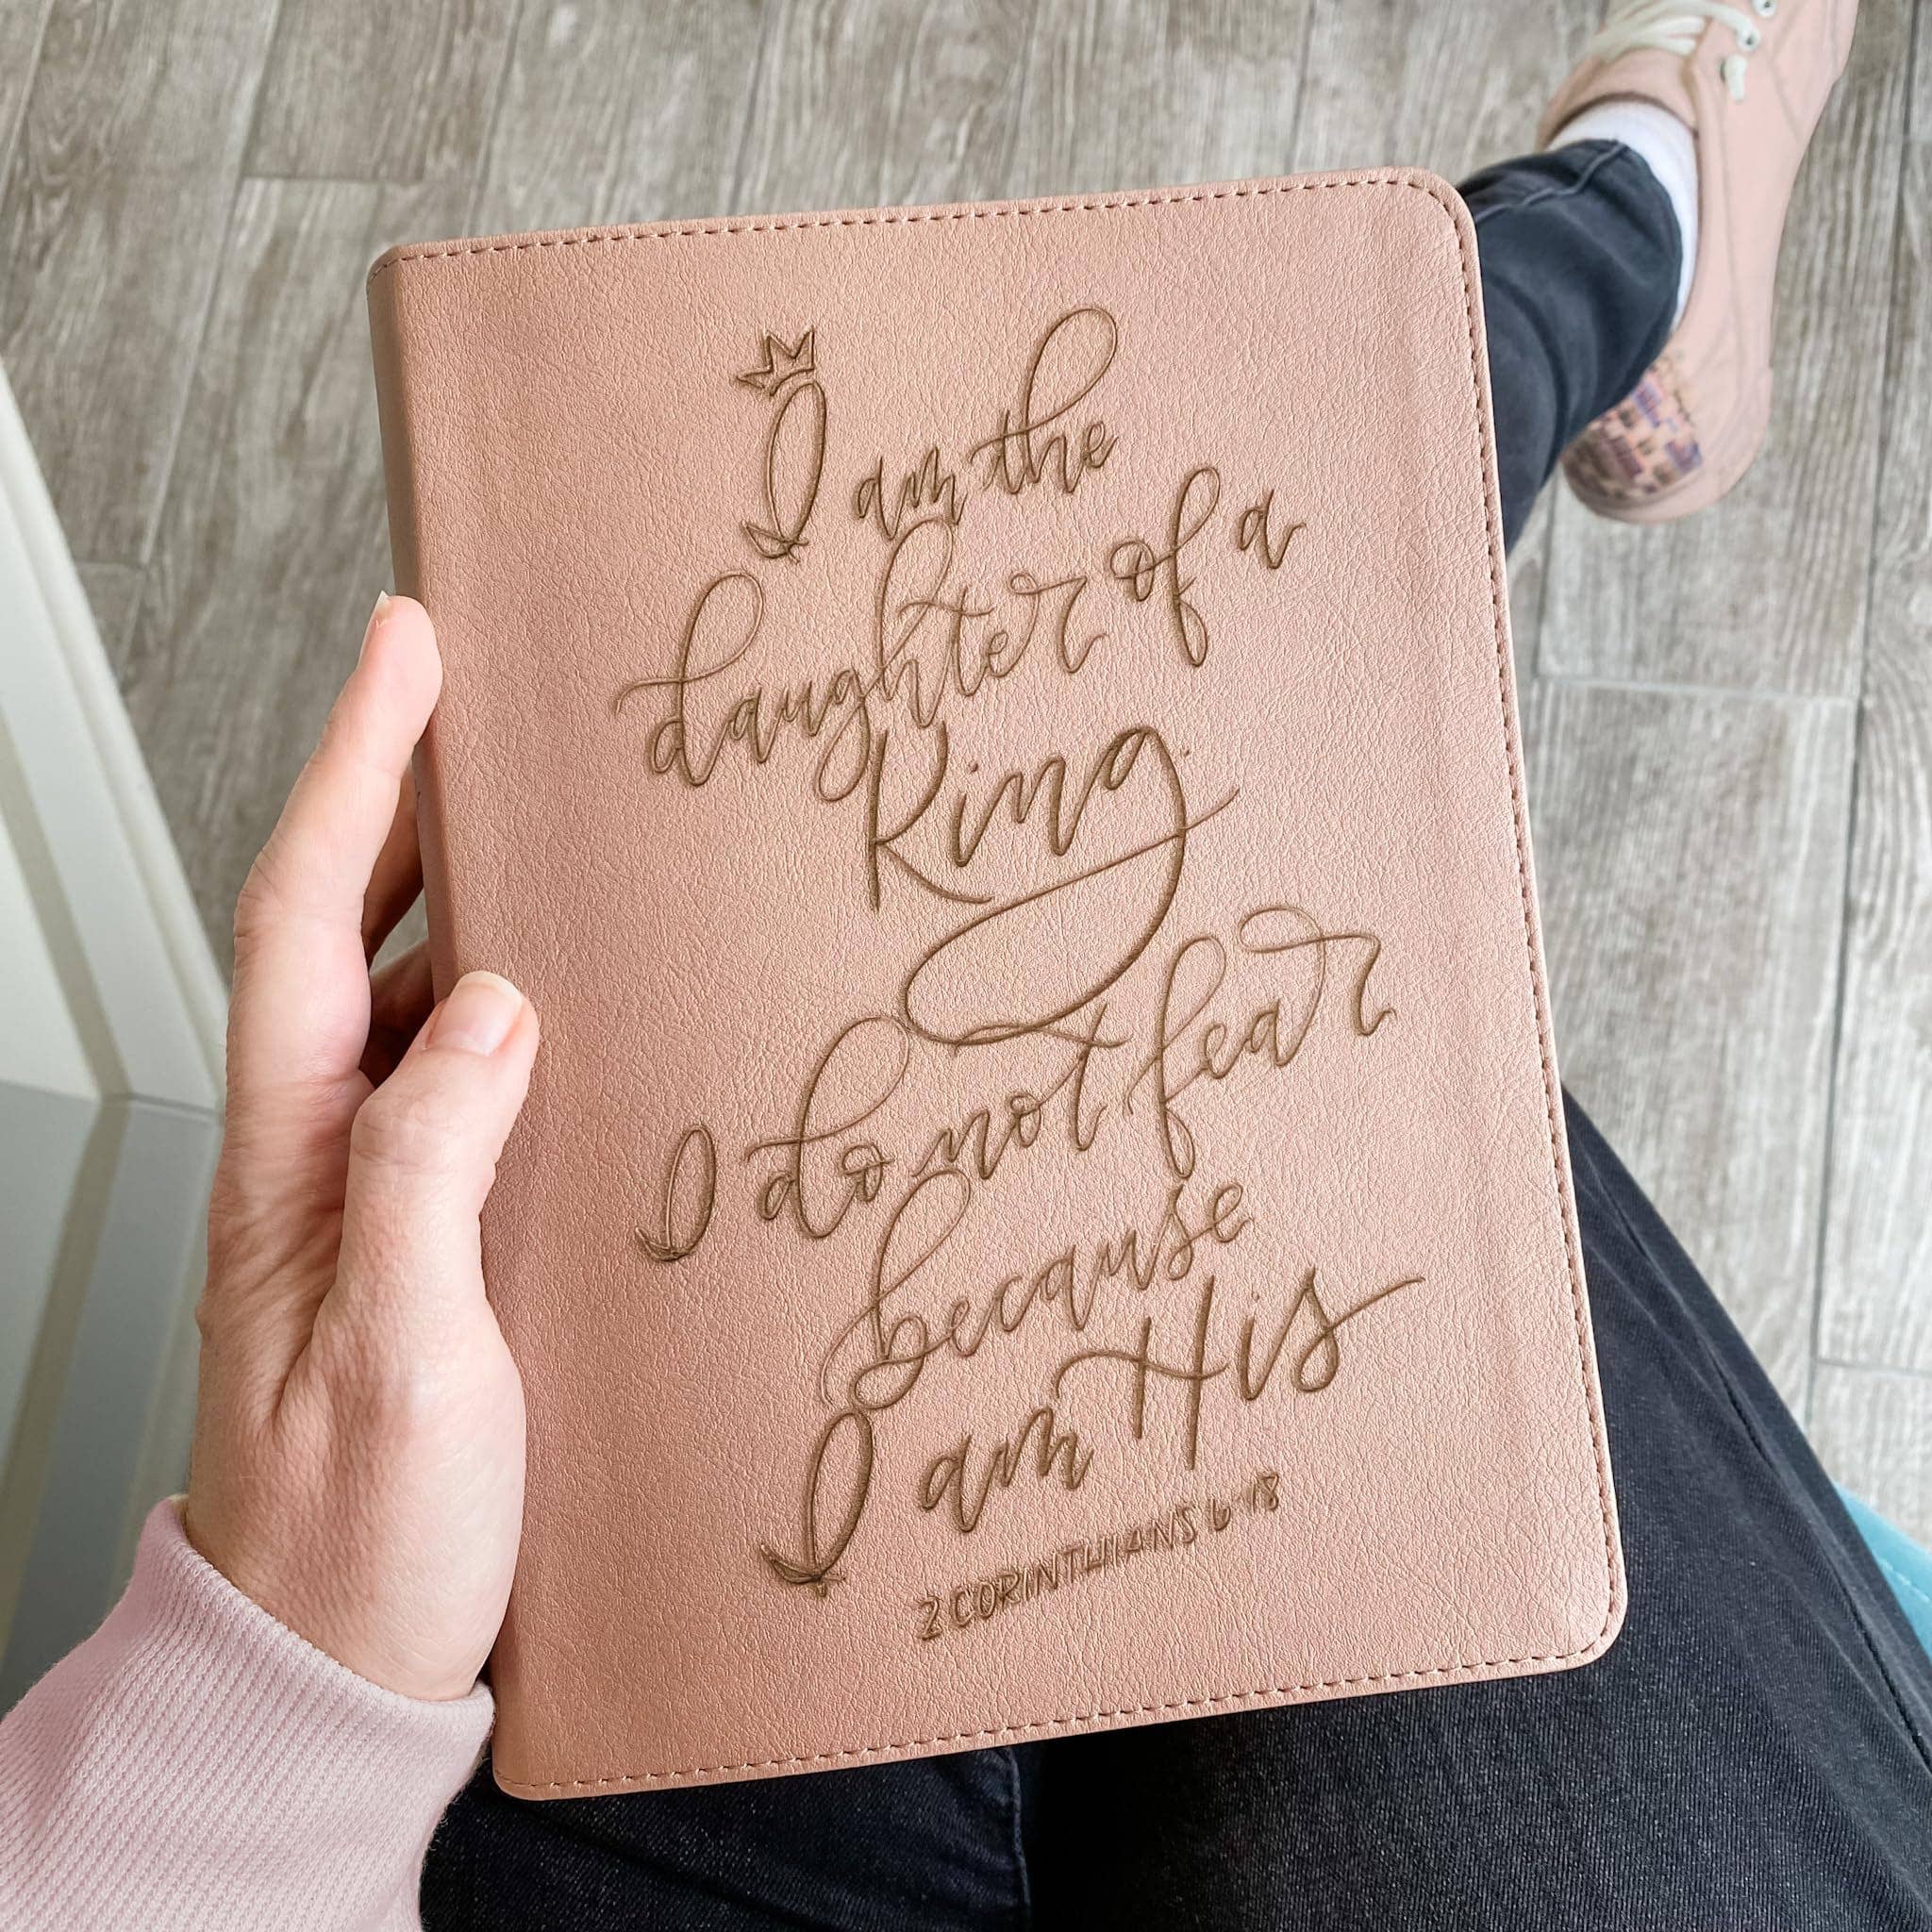 I am the
daughter of a
King.
I do not fear
because
I am His
2 CORINTHIANS 6:18